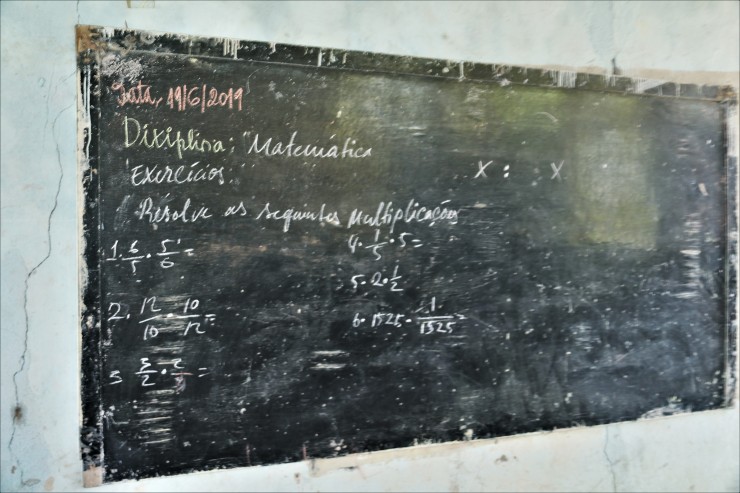 Data, 19/6/2019
Dixiplina: Matemática
Exercícios:
X : X
Resolve as seguintes multiplicações
1. 6/5 · 5/6 =
2. 12/10 · 10/12 =
3 3/2 · 2/3 =
4. 1/5 · 5 =
5. 2 · 1/2
6. 1525 · 1/1525 =